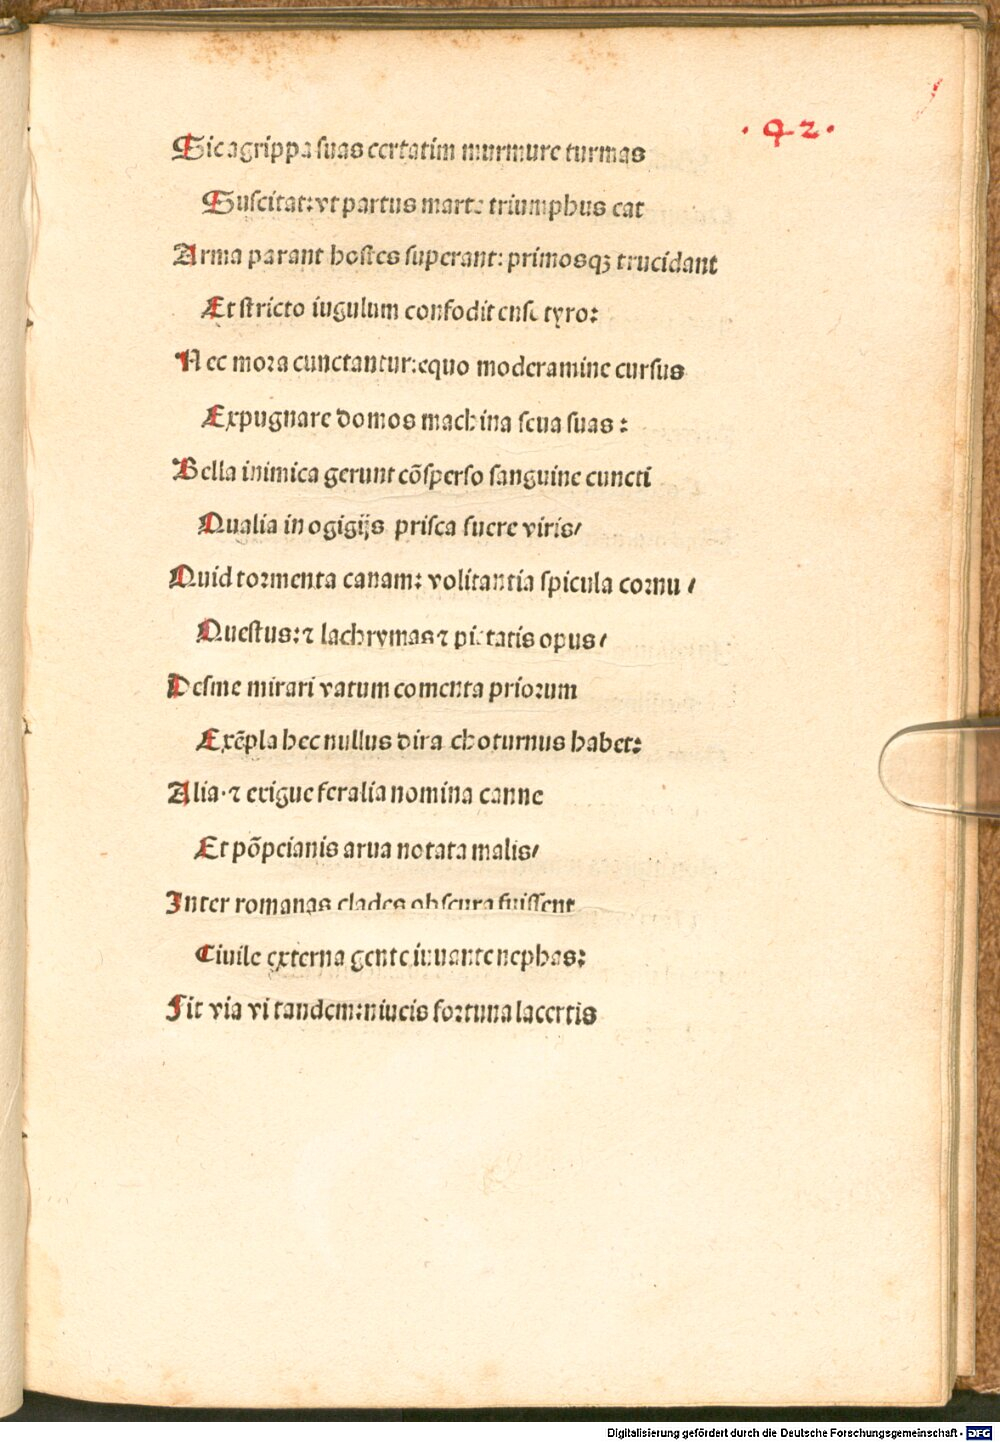 .42.
Sic agrippa suas certatim murmure turmas
Suscitat: vt partus marte triumphus eat
Arma parant hostes superant: primosqꝫ trucidant
Et stricto iugulum confodit ense tyro:
Nec mora cunctantur: equo moderamine cursus
Expugnare domos machina seua suas:
Bella inimica gerunt cõsperso sanguine cuncti
Qualia in ogigijs prisca fuere viris/
Quid tormenta canam: volitantia spicula cornu/
Questus: ⁊ lachrymas ⁊ pietatis opus/
Desine mirari vatum comenta priorum
Exẽpla hec nullus dira choturnus habet:
Alia · ⁊ exigue feralia nomina canne
Et põpeianis arua notata malis/
Inter romanas clades obscura fuissent
Ciuile externa gente iuuante nephas:
Fit via vi tandem: niucis fortuna lacertis
Digitalisierung gefördert durch die Deutsche Forschungsgemeinschaft - DFG